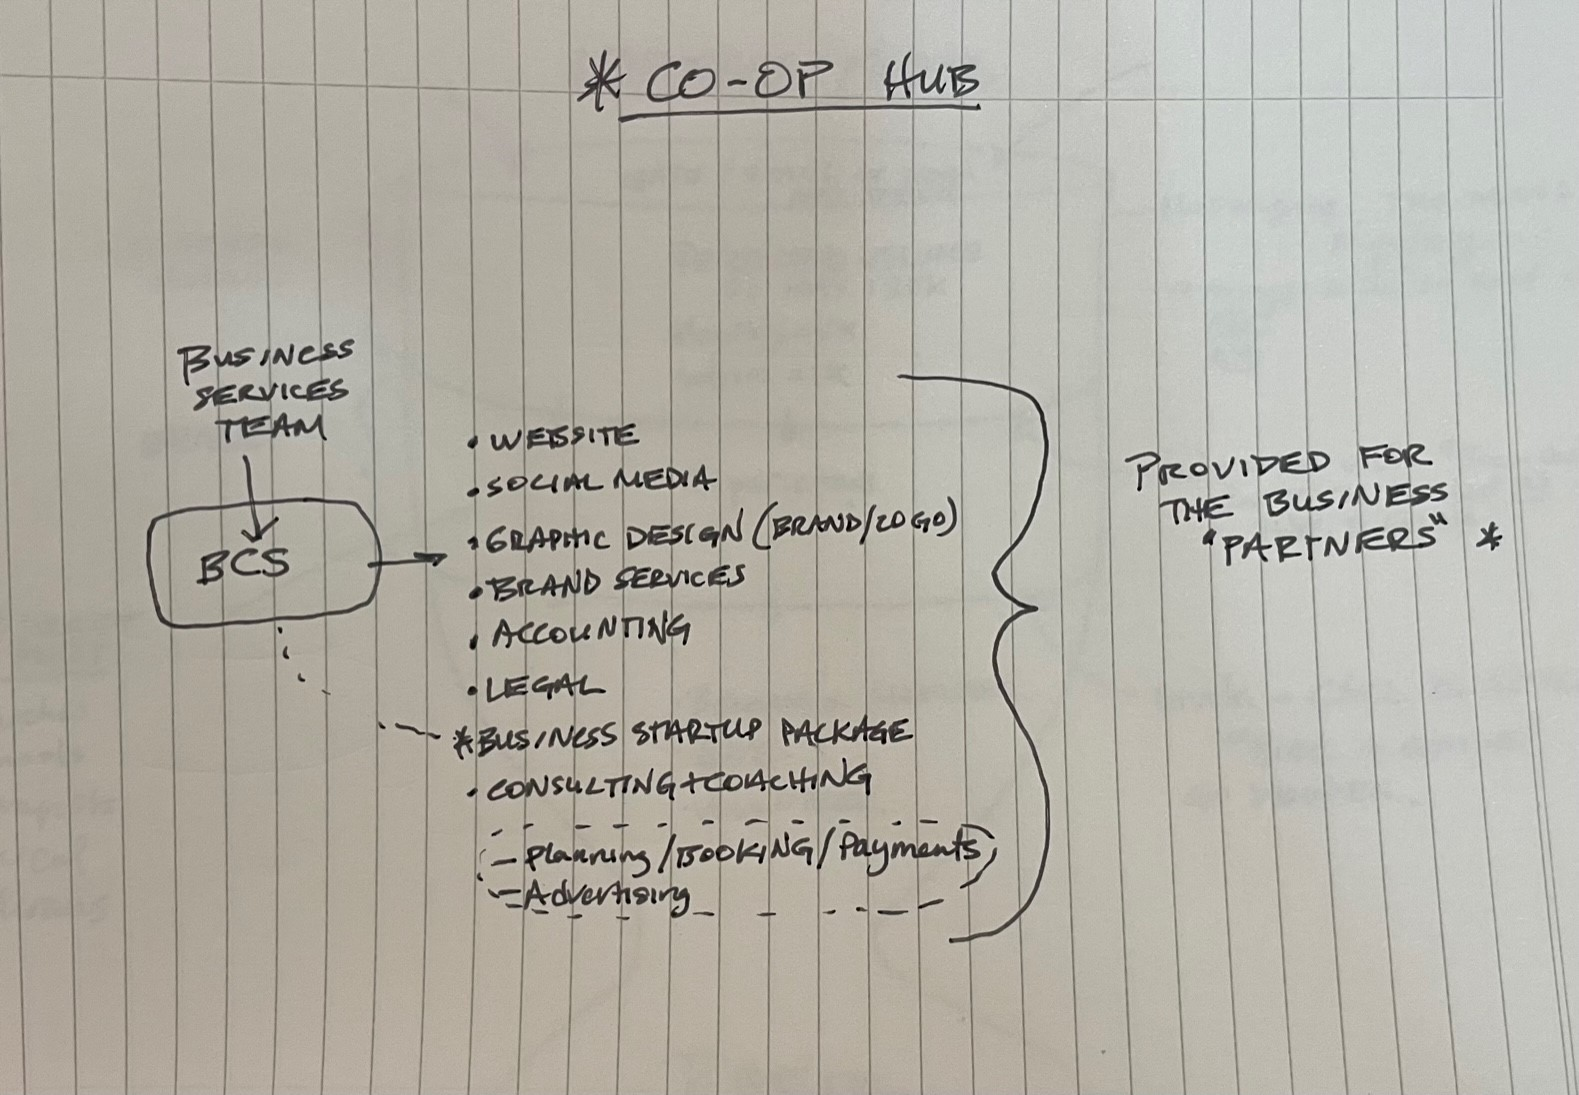 * CO-OP HUB
BUSINESS
SERVICES
TEAM
BCS
• WEBSITE
• SOCIAL MEDIA
• GRAPHIC DESIGN (BRAND/LOGO)
• BRAND SERVICES
• ACCOUNTING
• LEGAL
* BUSINESS STARTUP PACKAGE
• CONSULTING + COACHING
- Planning/BOOKING/Payments
- Advertising
PROVIDED FOR
THE BUSINESS
"PARTNERS" *